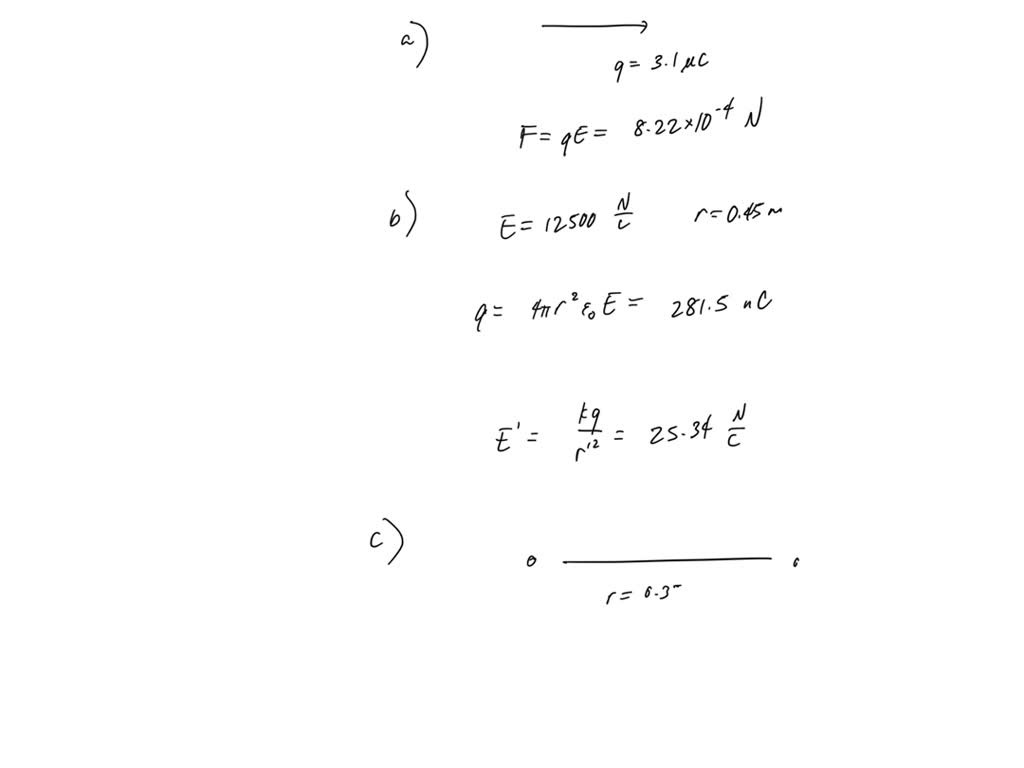 a)
q = 3.1 μC
F = qE = 8.22×10⁻⁴ N
b) E = 12500 N/C r = 0.45 m
q = 4πr²ε₀E = 281.5 nC
E' = kq/r'² = 25.34 N/C
c)
r = 0.3